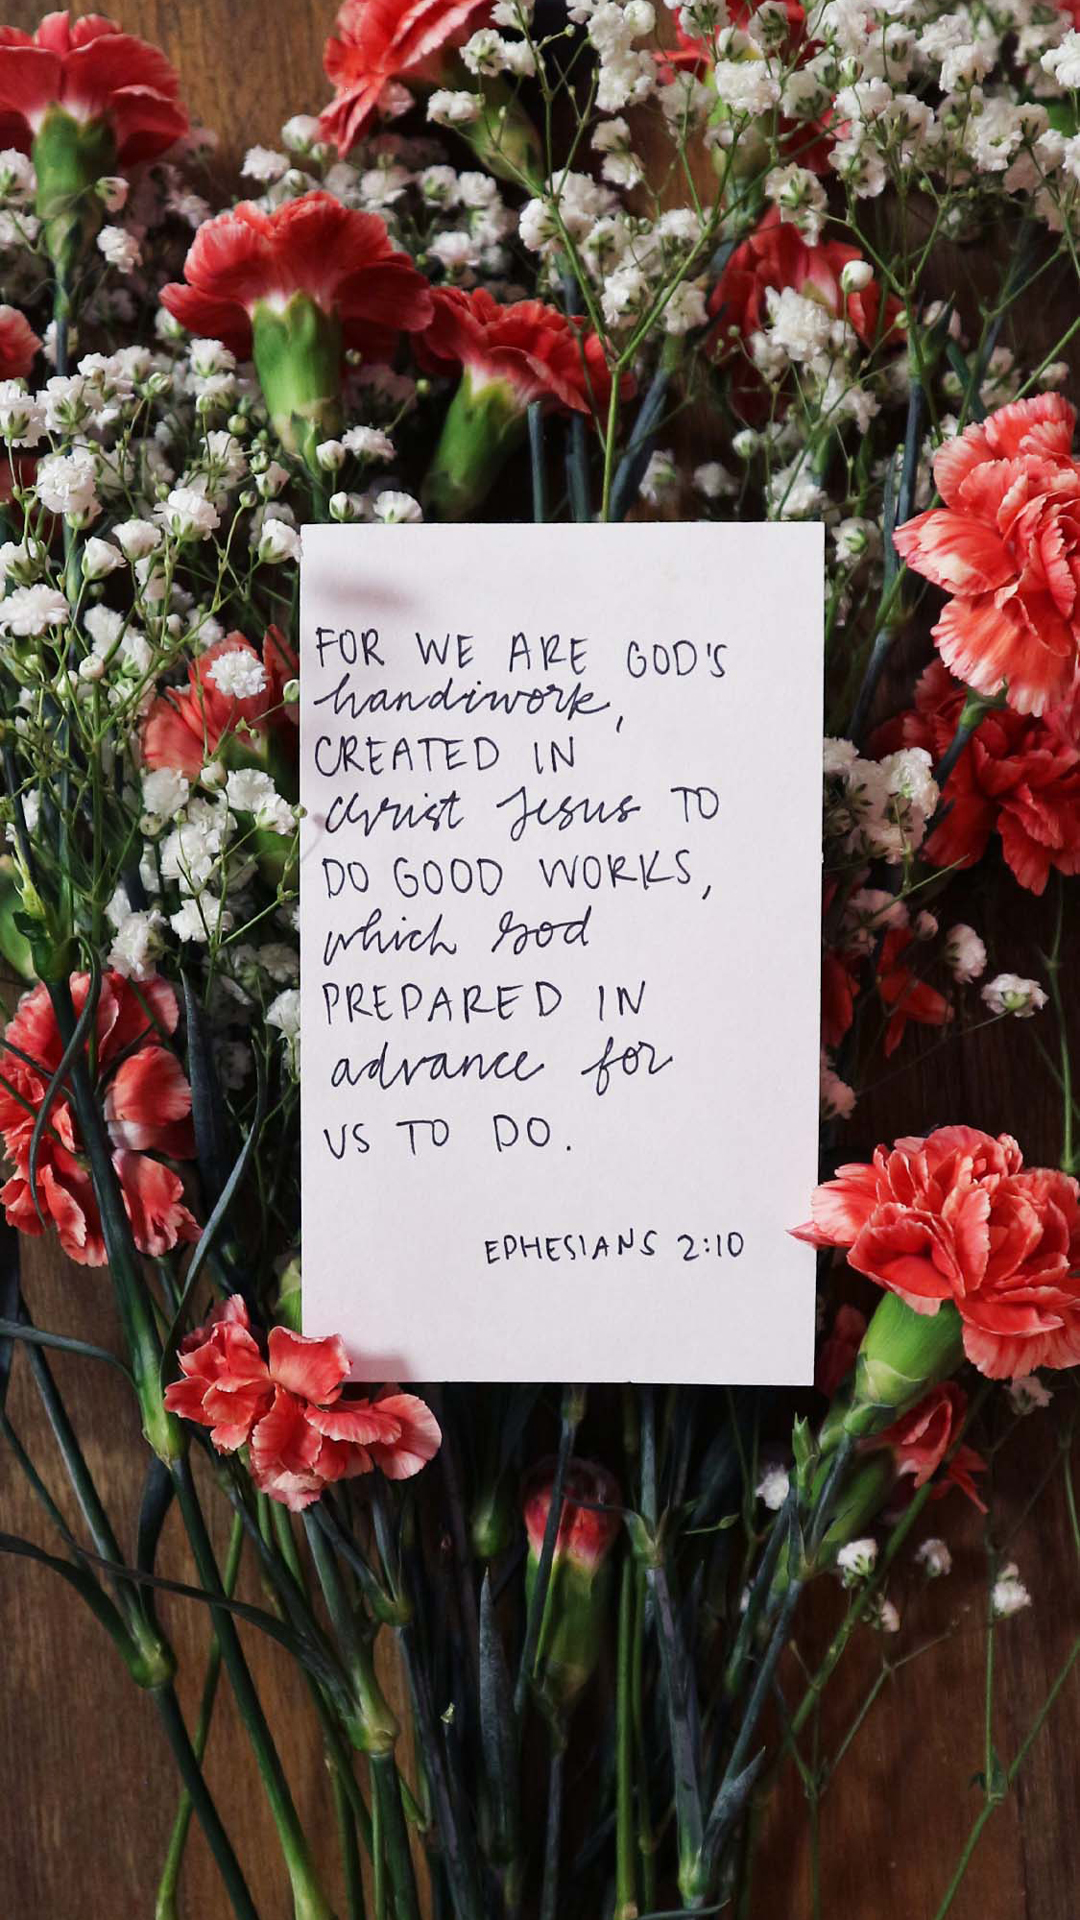 FOR WE ARE GOD'S
handiwork,
CREATED IN
Christ Jesus TO
DO GOOD WORKS,
which God
PREPARED IN
advance for
US TO DO.
EPHESIANS 2:10